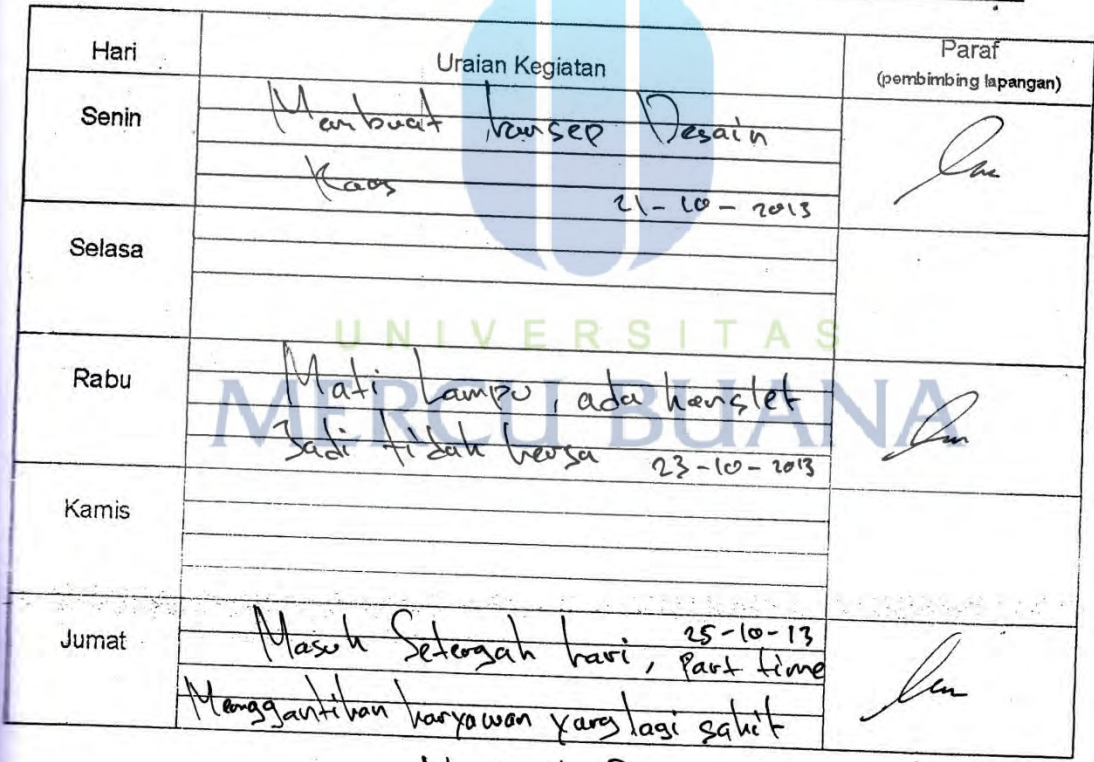 Hari Uraian Kegiatan Paraf
(pembimbing lapangan)
Senin Membuat konsep Desain
Kaos 21-10-2013
Selasa
UNIVERSITAS
MERCU BUANA
Rabu Mati Lampu, ada konslet
Jadi tidak kerja 23-10-2013
Kamis
Jumat Masuk Setengah hari, 25-10-13 Part time
Menggantikan karyawan yang lagi sakit